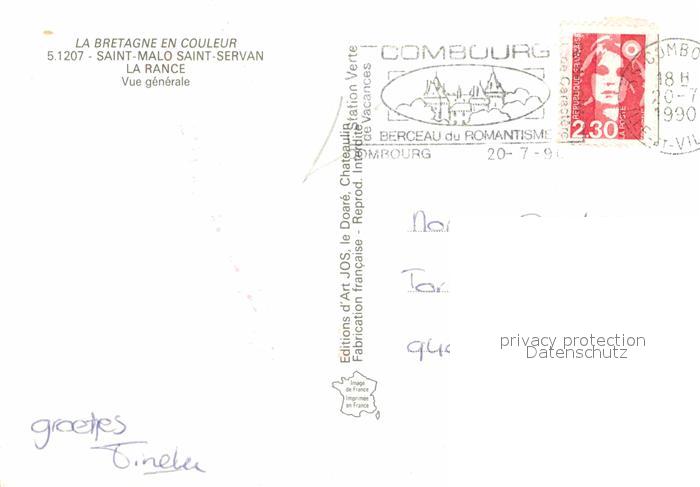 LA BRETAGNE EN COULEUR
5.1207 - SAINT-MALO SAINT-SERVAN
LA RANCE
Vue générale
Station Verte
de Vacances
COMBOURG
BERCEAU du ROMANTISME
COMBOURG 20-7-9
de Caractère
REPUBLIQUE FRANÇAISE
2.30
LA POSTE
COMBO
18 H
20-7
1990
ET-VIL
Editions d'Art JOS, le Doaré, Chateaulin
Fabrication française - Reprod. Interdite
Image
de France
Imprimée
en France
privacy protection
Datenschutz
groetjes
Tineke